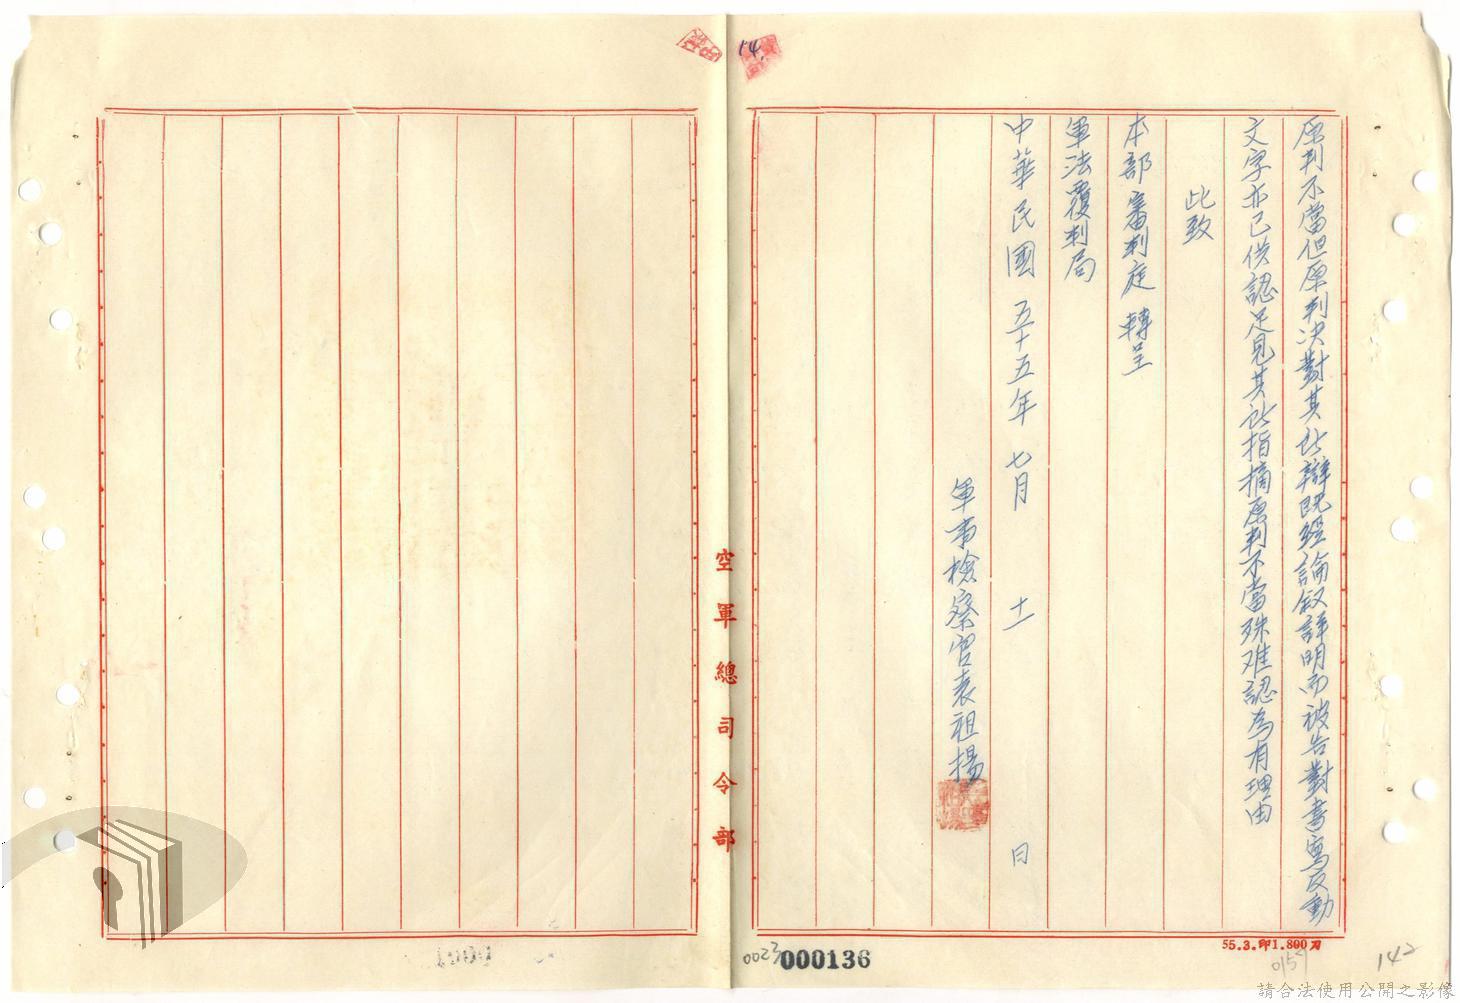 14.
原判不當但原判決對其所辯既經論叙詳明而被告對書寫反動
文字亦已供認足見其所指摘原判不當殊难認為有理由
此致
本部審判庭 轉呈
軍法覆判局
中華民國 五十五年 七月 十一 日
軍事檢察官袁祖揚
空軍總司令部
55.3.印1.800刀
0023
000136
0159
142
請合法使用公開之影像